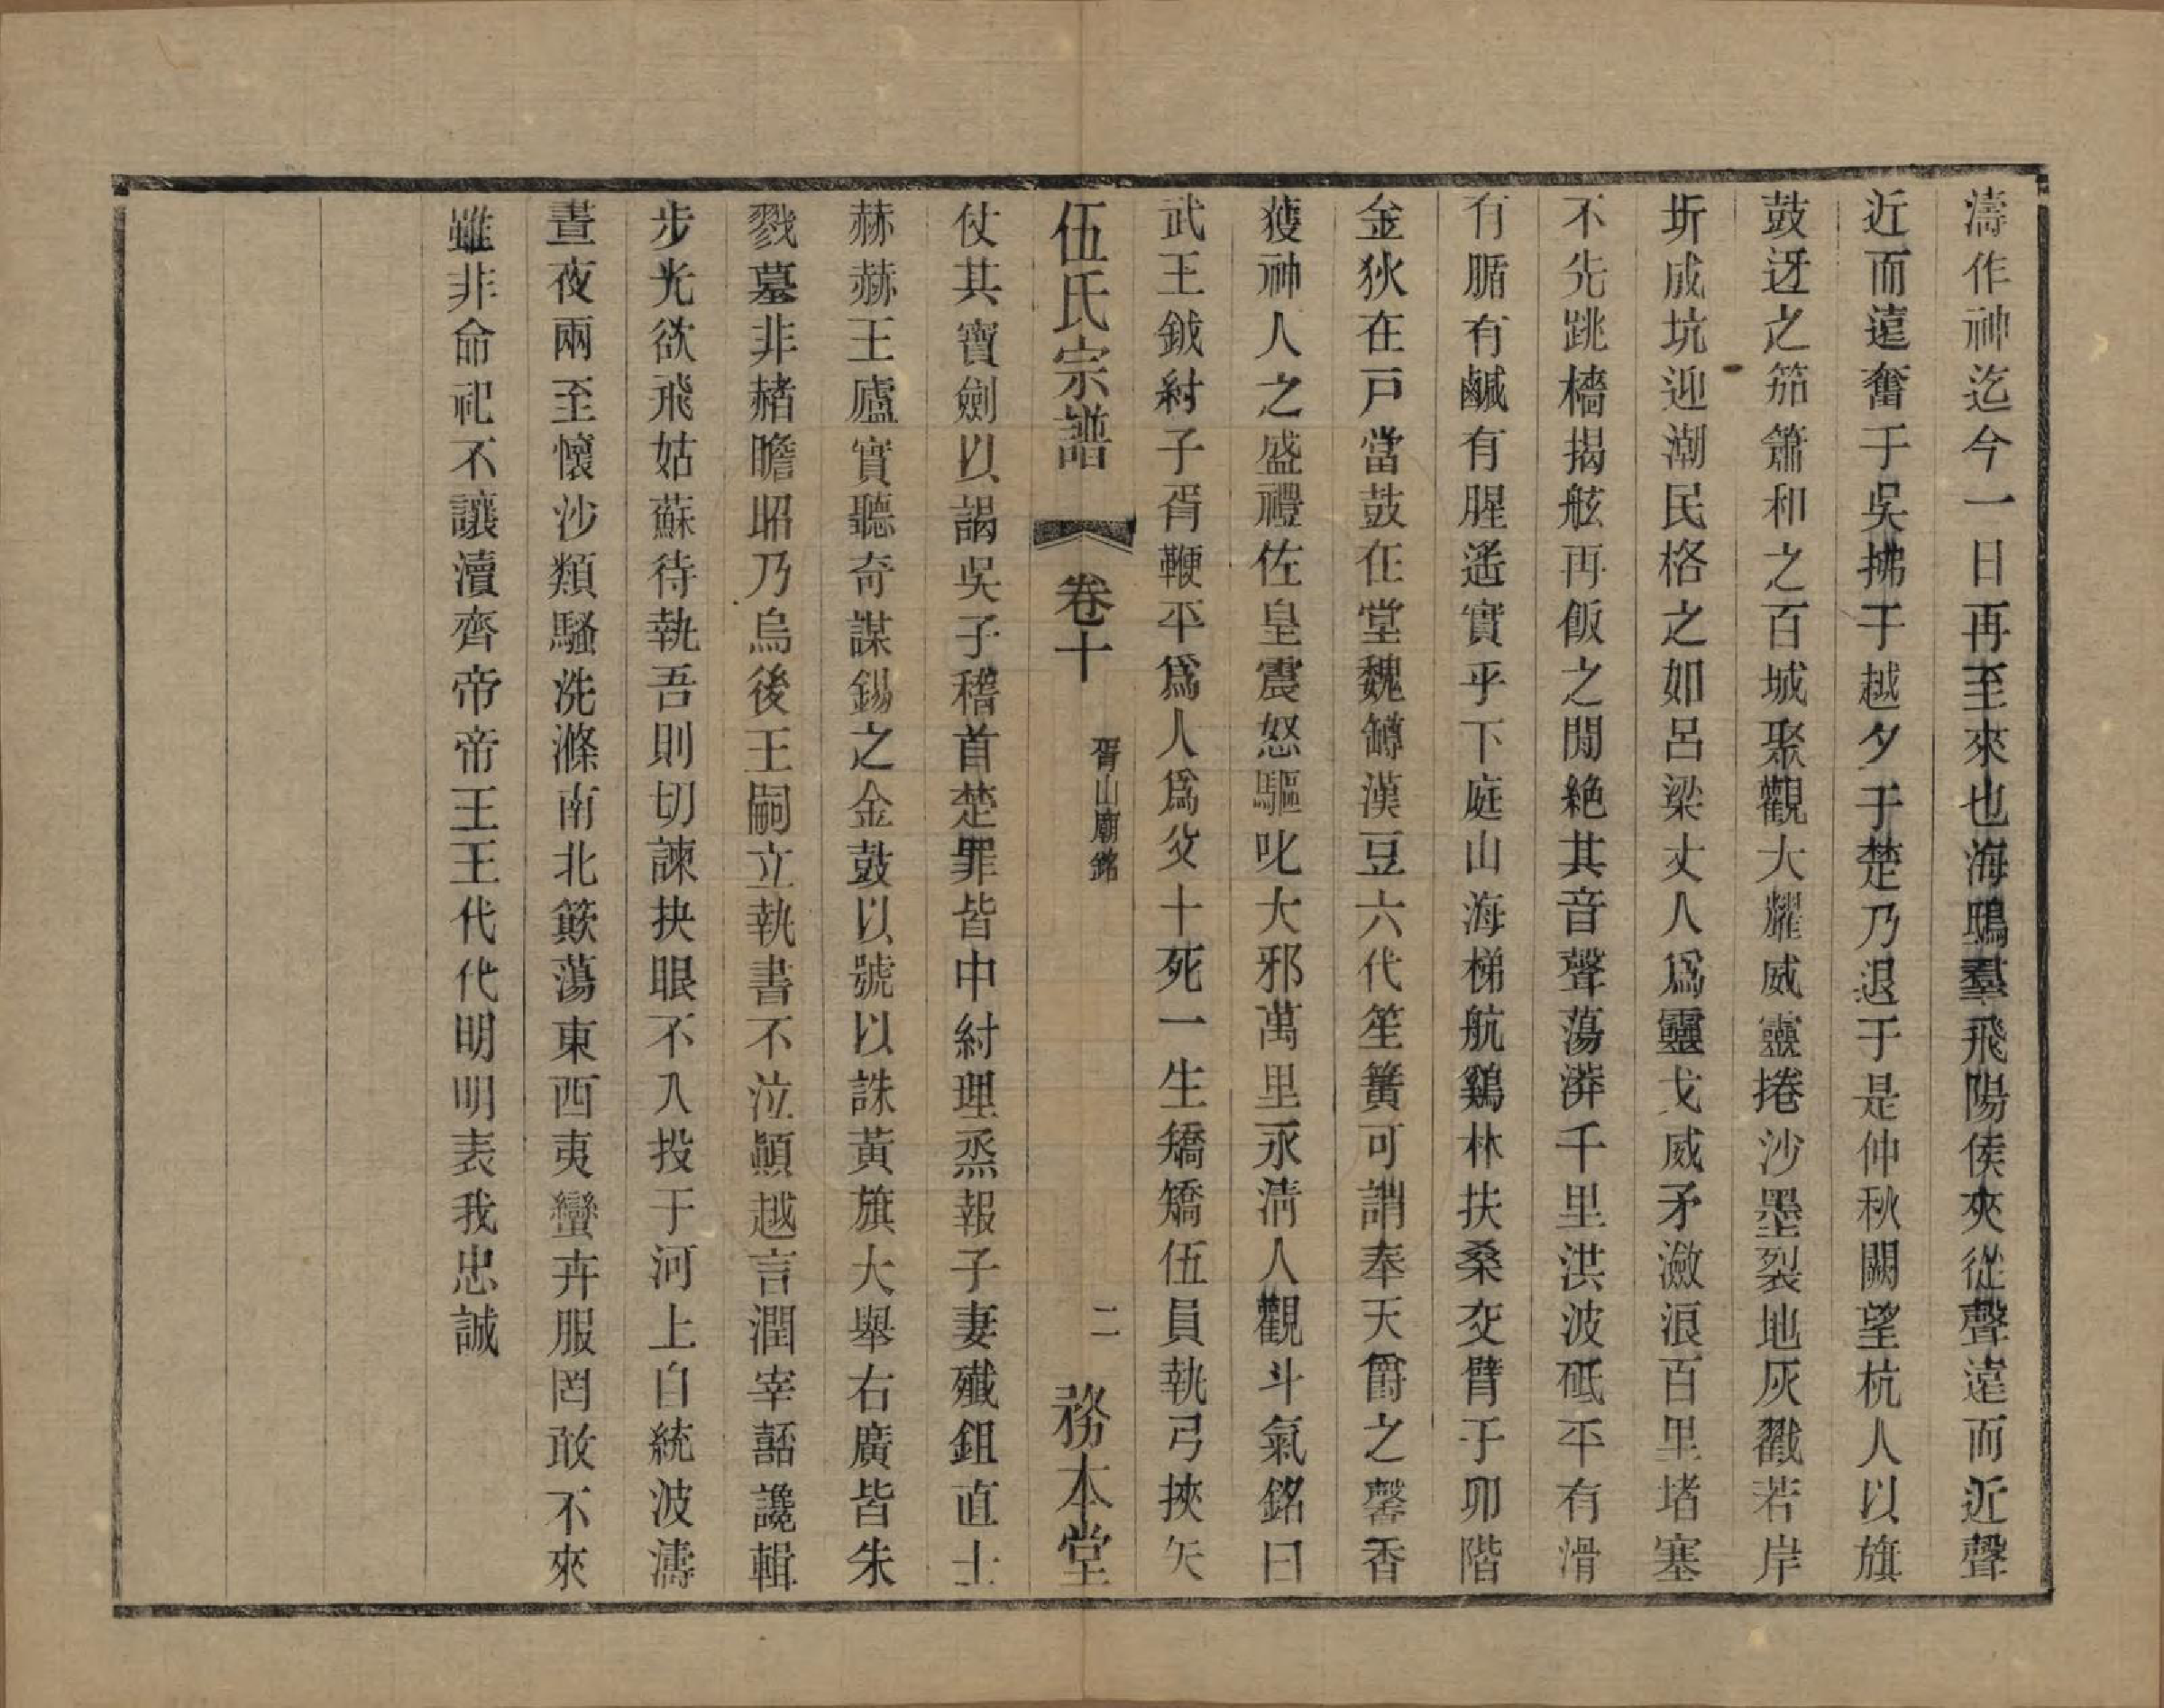 濤作神迄今一日再至來也海鴟羣飛陽侯夾從聲遠而近聲
近而遠奮于吳拂于越夕于楚乃退于是仲秋闕望杭人以旗
鼓迓之笳簫和之百城聚觀大耀威靈捲沙墨裂地灰戳若岸
圻成坑迎潮民格之如呂梁丈人爲靈戈威矛瀲浪百里堵塞
不先跳檣揭舷再飯之閒絶其音聲蕩漭千里洪波砥平有滑
有腯有鹹有腥遙實乎下庭山海梯航鷄林扶桑交臂于卯階
金狄在戸當鼓在堂魏罇漢豆六代笙簧可謂奉天爵之馨香
獲神人之盛禮佐皇震怒驅叱大邪萬里永淸人觀斗氣銘曰
武王鉞紂子胥鞭平爲人爲父十死一生矯矯伍員執弓挾矢
伍氏宗譜 卷十 胥山廟銘 二 務本堂
仗其寶劍以謁吳子稽首楚罪皆中紂理烝報子妻殲鉏直士
赫赫王廬實聽奇謀錫之金鼓以號以誅黃旗大舉右廣皆朱
戮墓非赭瞻昭乃烏後王嗣立執書不泣顚越言潤宰嚭讒輯
步光欲飛姑蘇待執吾則切諫抉眼不入投于河上自統波濤
晝夜兩至懷沙類騷洗滌南北簸蕩東西夷蠻卉服罔敢不來
雖非命祀不讓瀆齊帝帝王王代代明明表我忠誠